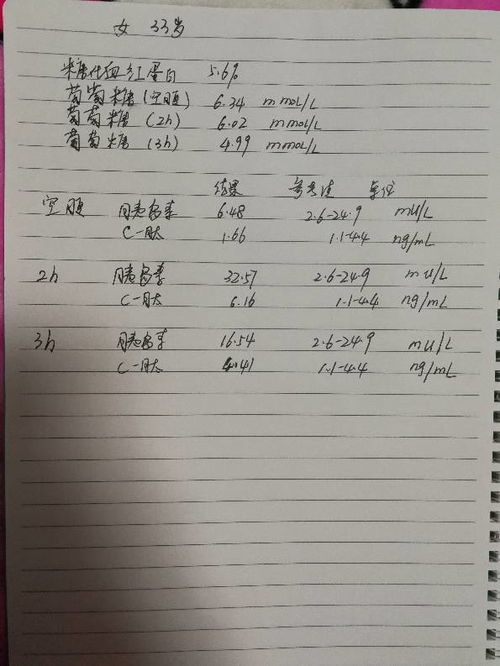 女 33岁
糖化血红蛋白 5.6%
葡萄糖(空腹) 6.34 mmol/L
葡萄糖(2h) 6.02 mmol/L
葡萄糖(3h) 4.99 mmol/L
结果 参考值 单位
空腹 胰岛素 6.48 2.6-24.9 mU/L
C-肽 1.66 1.1-4.4 ng/mL
2h 胰岛素 32.57 2.6-24.9 mU/L
C-肽 6.16 1.1-4.4 ng/mL
3h 胰岛素 16.54 2.6-24.9 mU/L
C-肽 4.41 1.1-4.4 ng/mL